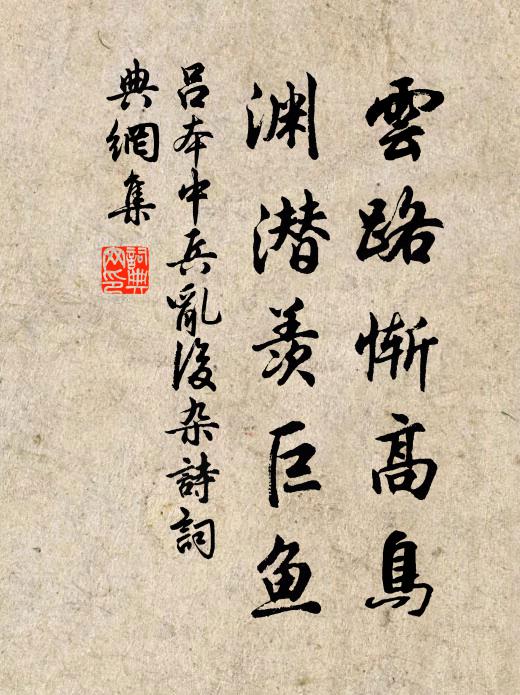 雲路慚高鳥
渊潜羡巨鱼
吕本中兵亂後杂詩詞
典網集
詞典
网印